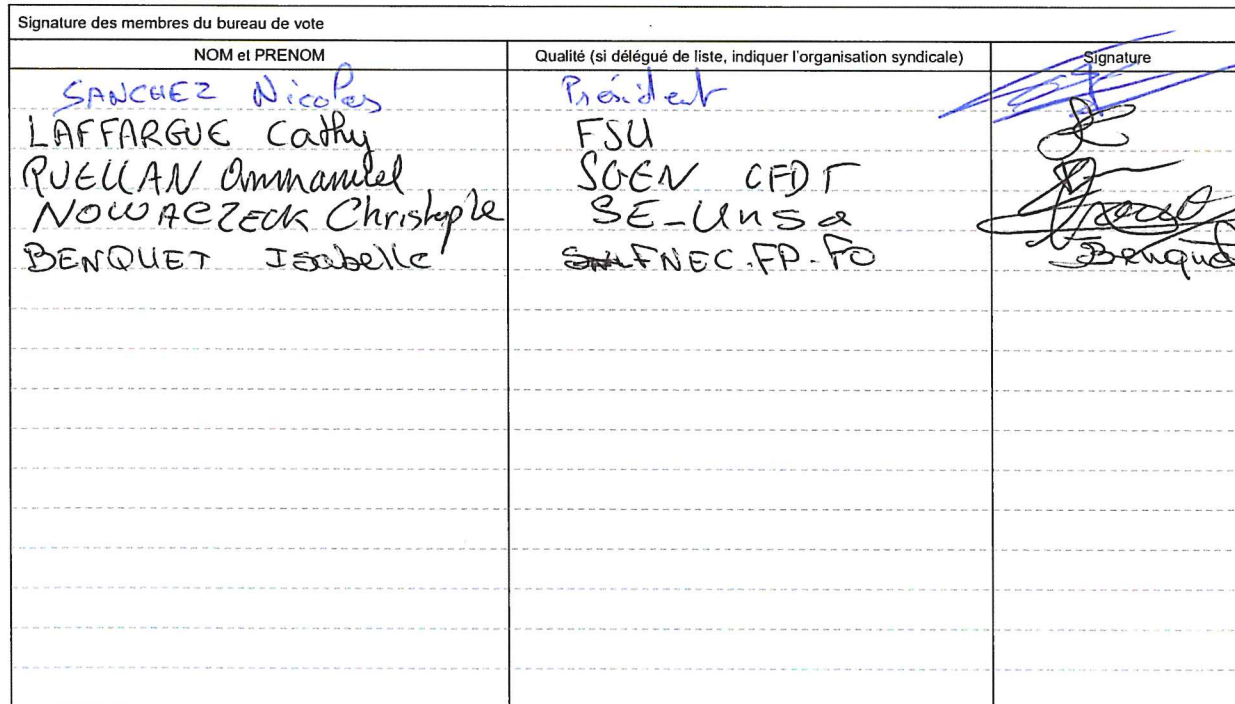 Signature des membres du bureau de vote
NOM et PRENOM Qualité (si délégué de liste, indiquer l'organisation syndicale) Signature
SANCHEZ Nicolas Président
LAFFARGUE Cathy FSU
RUELLAN Ammanuel SGEN CFDT
NOWACZECK Christophe SE-Unsa
BENQUET Isabelle FNEC.FP-FO Benquet